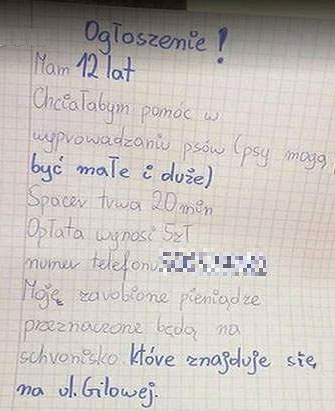 Ogłoszenie!
Mam 12 lat
Chciałabym pomóc w
wyprowadzaniu psów (psy mogą
być małe i duże)
Spacer trwa 20 min
Opłata wynosi 5zł
numer telefonu
Moje zarobione pieniądze
przeznaczone będą na
schronisko które znajduje się
na ul. Gilowej.